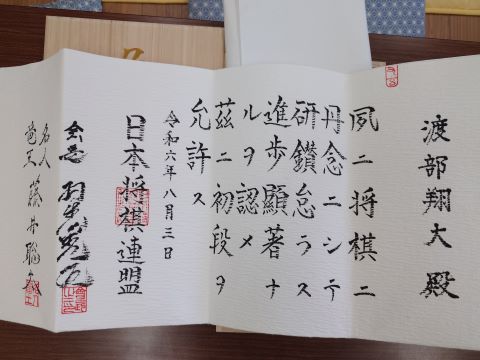 渡部翔大殿
夙ニ将棋ニ
丹念ニシテ
研鑽怠ラス
進歩顯著ナ
ルヲ認メ
茲ニ初段ヲ
允許ス
令和六年八月三日
日本将棋連盟
会長 羽生善治
名人
竜王 藤井聡太